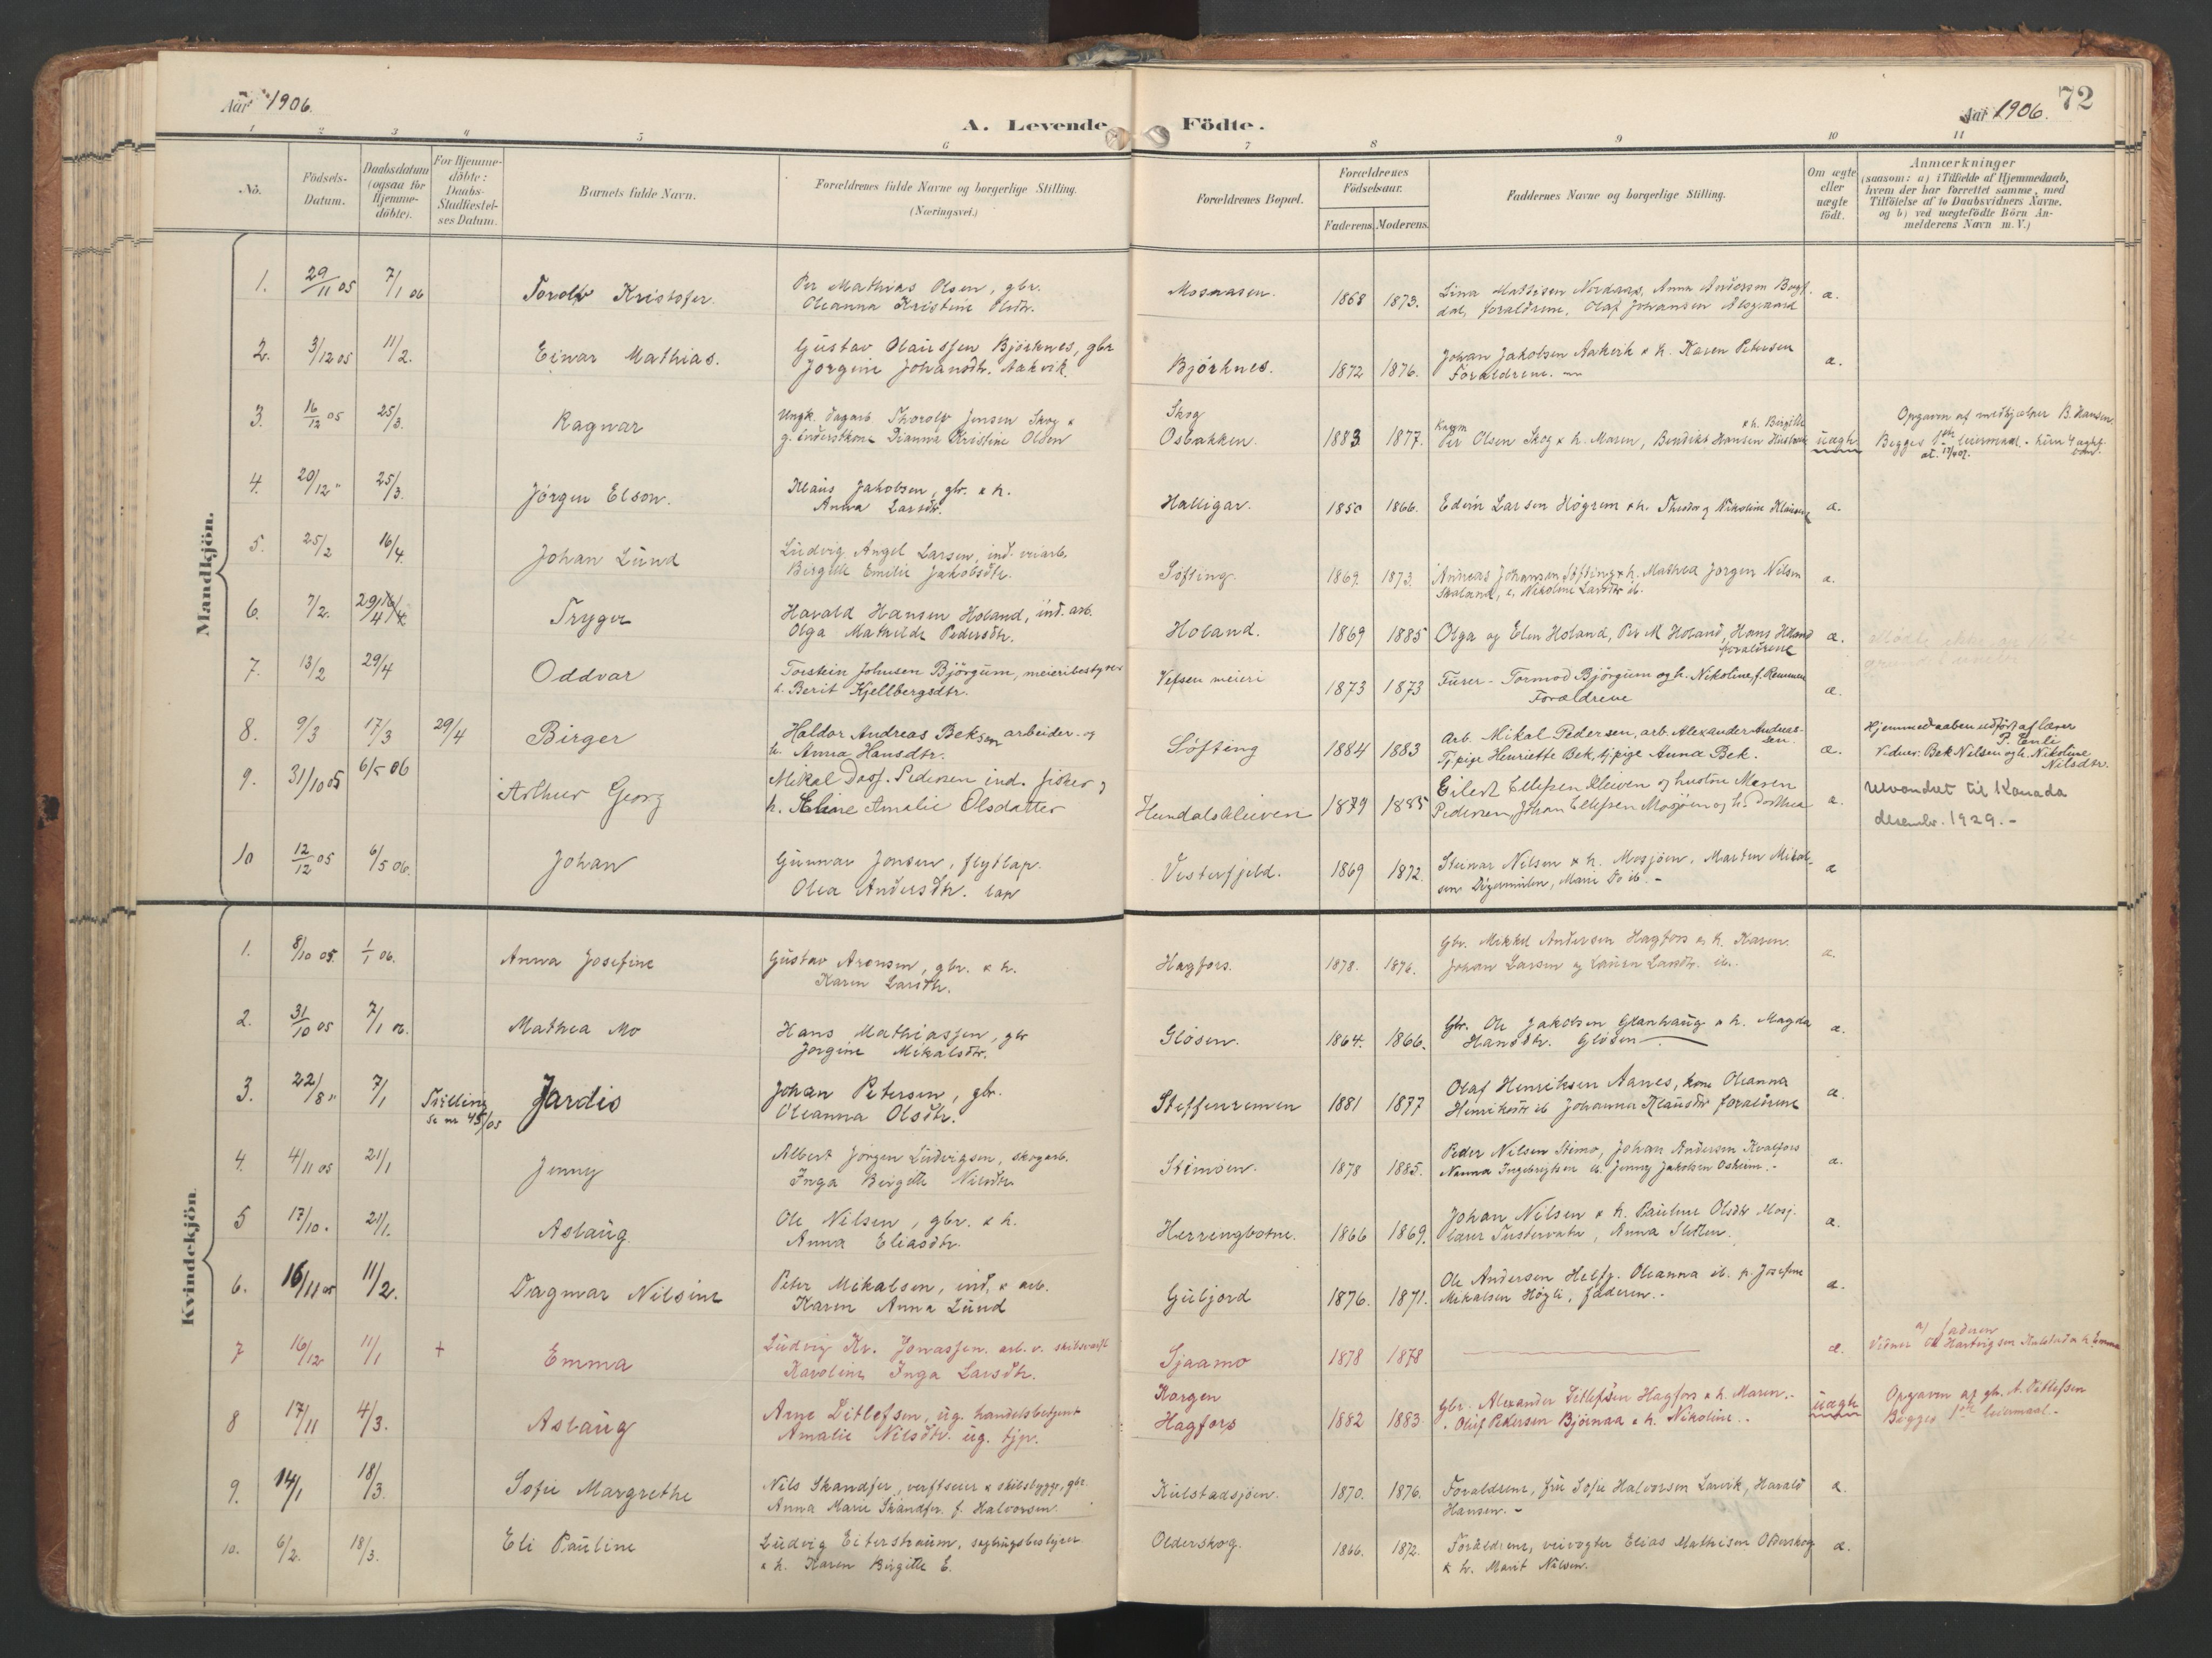 Aar 1906.
A. Levende Födte.
Aar 1906.
72
1 2 3 4 5 6 7 8 9 10 11
No.
Födsels-Datum.
Daabsdatum (ogsaa för Hjemmedöbte).
For Hjemmedöbte: Daabs-Stadfæstelses Datum.
Barnets fulde Navn.
Forældrenes fulde Navne og borgerlige Stilling. (Næringsvei.)
Forældrenes Bopæl.
Forældrenes Födselsaar.
Faderens. Moderens.
Faddernes Navne og borgerlige Stilling.
Om ægte eller uægte födt.
Anmærkninger
(saasom: a) i Tilfælde af Hjemmedaab, hvem der har forrettet samme, med Tilföielse af to Daabsvidners Navne, og b) ved uægtefödte Börn Anmelderens Navn m.V.)
Mandkjön.
1. 29/11 05 7/1 06 Torolv Kristofer. Per Mathias Olsen, gbr. Mosaasen. 1868 1873. Lina Mathisen Nordaas, Anna Andersen
Oleanna Kristine Olsdtr. forældrene, Olaf Johansen
2. 3/12 05 11/2. Einar Mathias. Gustav Olaussen Björknes, gbr Björknes. 1872 1876. Johan Jakobsen Aakvik & h. Karen Petersen
Jörgine Johansdtr. Aakvik. Forældrene. æ.
3. 16/12 05 25/3. Ragnar Ungk. dagarb. Thorolv Jensen Skog & Skog & h. Birgitte Opgaven af medhjælper B. Hansen
Dianna Kristine Olsen Osbakken. 1883 1877. Per Olsen Skog & h. Maren, Bendikt Hansen uægte Begges 1ste leiermaal.
4. 20/12 " 25/3. Jörgen Elson. Klaus Jakobsen, gbr. & h. Halligar. 1850 1866. Edvin Larsen Högrem & h. og Nikoline æ.
Anna Larsdtr.
5. 25/2 16/4. Johan Lund Ludvig Angel Larsen, ind. veiarb. Söfting. 1869. 1873. Andreas Johansen Söfting & h. Mathea Jörgen Nilsen æ.
Birgitte Emilie Jakobsdtr. Nikoline Larsdtr ib.
6. 7/2. 29/4 Trygve Harald Hansen Holand, ind. arb. Holand. 1869 1885 Olga og Elen Holand, Per M Holand, Hans Holand æ.
Olga Mathilde Pedersdtr. forældrene
7. 13/2 29/4 Oddvar Torstein Johnsen Björgum, meieribestyrer Vefsen meieri 1873 1873 Furer - Tormod Björgum og h. Nikoline, f. Remmen
h. Berit Kjellbergsdtr. Forældrene æ.
8. 9/3 17/3 29/4 Birger Haldor Andreas Beksen arbeider og Söfting 1884 1883 Arb. Mikal Pedersen, arb. Alexander Andreassen. Hjemmedaaben udfört af lærer P. Enli
h. Anna Hansdtr. Tj.pige Henriette Bek, tj.pige Anna Bek. æ. Vidner: Bek Nilsen og h. Nikoline Nilsdtr.
9. 31/10 05 6/5 06 Arthur Georg Mikal Dosf. Pedersen ind. fisker og Hundalskleiven 1879 1885 Eilert Ellefsen Kleiven og hustru Maren utvandret til Kanada
h. Aline Amalie Olsdatter Pedersen, Johan Ellefsen Mosjöen og h. Dorthea æ. desember. 1929.-
10 12/12 05 6/5 06. Johan Gunnar Jonsen, flytlap. Vesterfjeld. 1869 1872. Steinar Nilsen & h. Mosjöen, Marten
Olea Andersdtr. lap Marie Do ib.- æ
Kvindekjön.
1. 8/10 05. 1/1 06. Anna Josefine Gustav Aronsen, gbr. & h. Hagfors. 1878. 1876. Gbr. Mikkel Andersen Hagfors & h. Karen. æ.
Karen Larsdtr. Johan Larsen og Laura Larsdtr. ib.
2. 31/10 05 7/1 06. Mathea Mo Hans Mathiassen, gbr Glösen. 1864. 1866. Gbr. Ole Jakobsen Glanhaug & h. Magda æ.
Jörgine Mikalsdtr. Hansdtr. Glösen
3. 22/8 " 7/1 Tvilling se nr 45/05 Jardis Johan Petersen, gbr. Steffenremen 1881 1877 Olaf Henriksen Aanes, kone Oleanna æ.
Oleanna Olsdtr. Henriksdtr ib Johanna Klausdtr forældrene
4. 4/11 05 21/1 Jenny Albert Jörgen Ludvigsen, skogarb. Stimoen. 1878 1885. Peder Nilsen Stimo, Johan Andersen Kvalfors æ.
Inga Birgitte Nilsdtr Nanna Ingebrigtsen ib. Jenny Jakobsen Osheim.-
5 17/10. 21/1. Aslaug. Ole Nilsen, gbr. & h. Herringbotne. 1866 1869. Johan Nilsen & h. Pauline Olsdtr Mosj. æ.
Anna Eliasdtr. Tustervatn, Anna
6. 16/11 05 11/2. Dagmar Nilsine Peter Mikalsen, ind. & arb. Gubjord 1876. 1871. Ole Andersen Oleanna ib. p. Josefine æ.
Karen Anna Lund Mikalsen Högli, faderen.-
7 16/12 11/1 + Emma Ludvig Kr. Jonassen. arb. v. skibsværft Sjaamo 1878 1878 æ. a/ faderen
Karoline Inga Larsdtr. Vidner Ole Hartvigsen Kulstad & h. Emma
8 17/11 4/3. Aslaug Arne Ditlefsen, ug. handelsbetjent Korgen Hagfors 1882 1883. gbr. Alexander Ditlefsen Hagfors & h. Maren.- uægte Opgaven af gbr. A. Ditlefsen
Amalie Nilsdtr. ug. tjp. Oluf Pedersen Björnaa & h. Nikoline.. Begges 1ste leiermaal.-
9. 14/1 18/3. Sofie Margrethe Nils Skandfer, værftseier & skibsbygger, gbr Kulstadsjöen. 1870. 1876. Forældrene, fru Sofie Halvorsen Larvik, Harald æ.
Anna Marie Skandfer. f. Halvorsen. Hansen.-
10. 6/2. 18/3. Eli Pauline Ludvig Eiterstraum, sagbrugsbestyrer Olderskog. 1866. 1872. Forældrene, veivogter Elias Mathisen Olderskog æ.
& h. Karen Birgitte E. & h. Marit Nilsen.